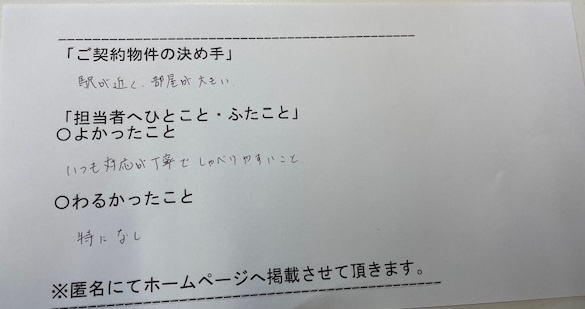 「ご契約物件の決め手」
駅が近く、部屋が大きい
「担当者へひとこと・ふたこと」
〇よかったこと
いつも対応が丁寧でしゃべりやすいこと
〇わるかったこと
特になし
※匿名にてホームページへ掲載させて頂きます。